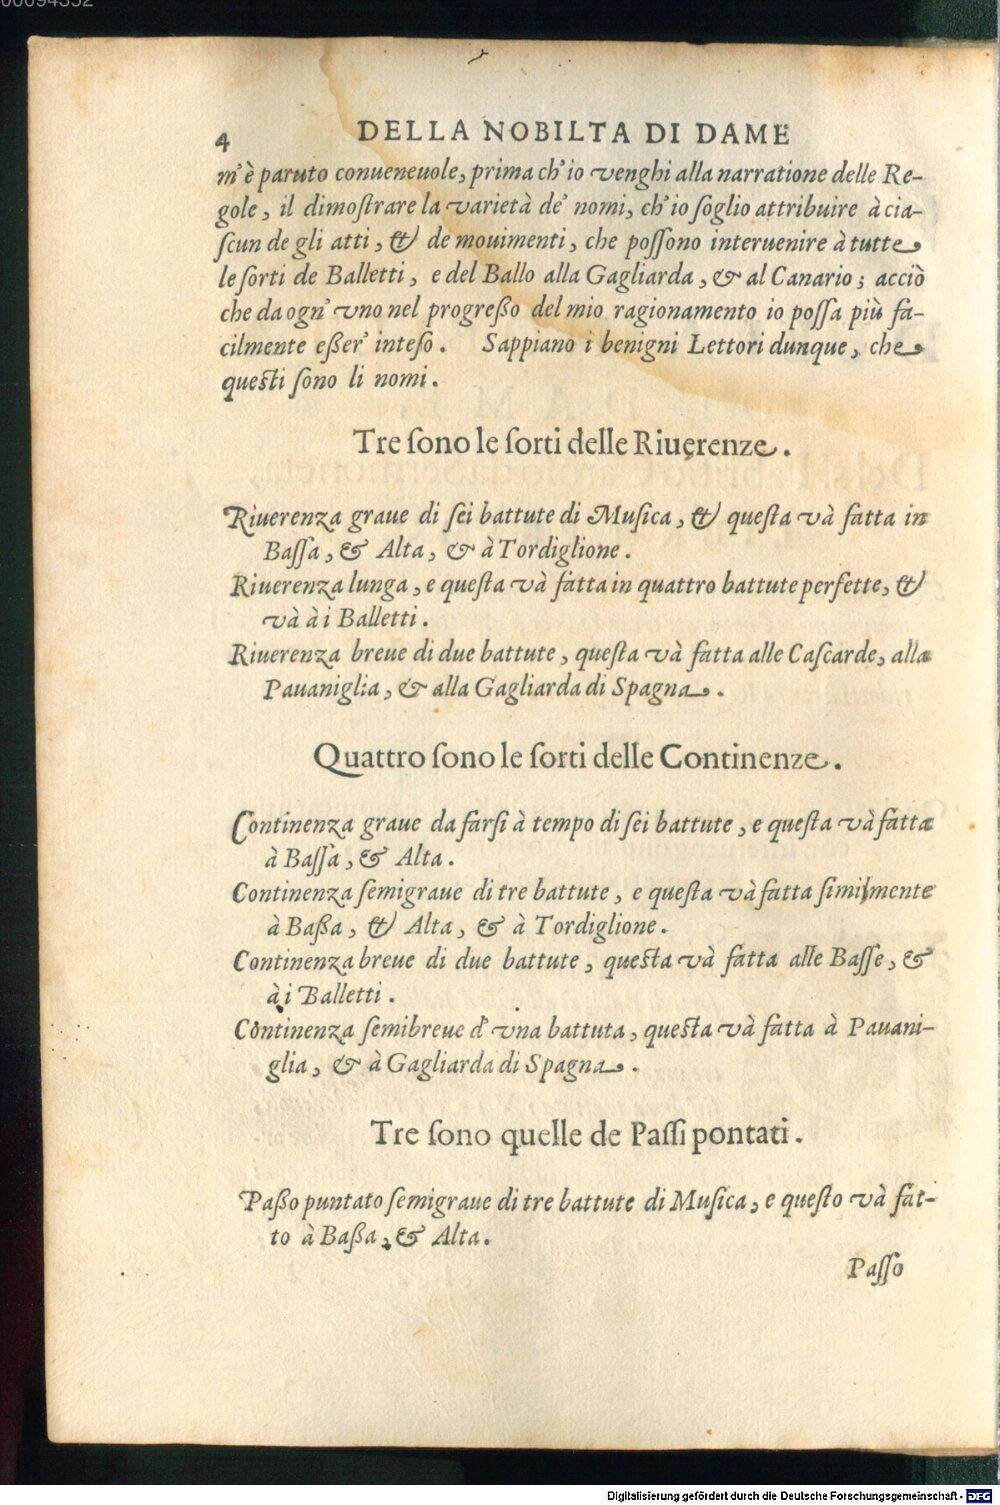 00094352
4 DELLA NOBILTA DI DAME
m'è paruto conueneuole, prima ch'io venghi alla narratione delle Re-
gole, il dimoſtrare la varietà de' nomi, ch'io ſoglio attribuire à cia-
ſcun de gli atti, & de mouimenti, che poſſono interuenire à tutte
le ſorti de Balletti, e del Ballo alla Gagliarda, & al Canario; acciò
che da ogn' vno nel progreßo del mio ragionamento io poſſa più fa-
cilmente eßer' inteſo. Sappiano i benigni Lettori dunque, che
queſti ſono li nomi.
Tre ſono le ſorti delle Riuerenze.
Riuerenza graue di ſei battute di Muſica, & queſta và fatta in
Baſſa, & Alta, & à Tordiglione.
Riuerenza lunga, e queſta và fatta in quattro battute perfette, &
và à i Balletti.
Riuerenza breue di due battute, queſta và fatta alle Caſcarde, alla
Pauaniglia, & alla Gagliarda di Spagna.
Quattro ſono le ſorti delle Continenze.
Continenza graue da farſi à tempo di ſei battute, e queſta và fatta
à Baſſa, & Alta.
Continenza ſemigraue di tre battute, e queſta và fatta ſimilmente
à Baßa, & Alta, & à Tordiglione.
Continenza breue di due battute, queſta và fatta alle Baſſe, &
à i Balletti.
Continenza ſemibreue d' vna battuta, queſta và fatta à Pauani-
glia, & à Gagliarda di Spagna.
Tre ſono quelle de Paſſi pontati.
Paßo puntato ſemigraue di tre battute di Muſica, e queſto và fat-
to à Baßa, & Alta.
Paſſo
Digitalisierung gefördert durch die Deutsche Forschungsgemeinschaft - DFG